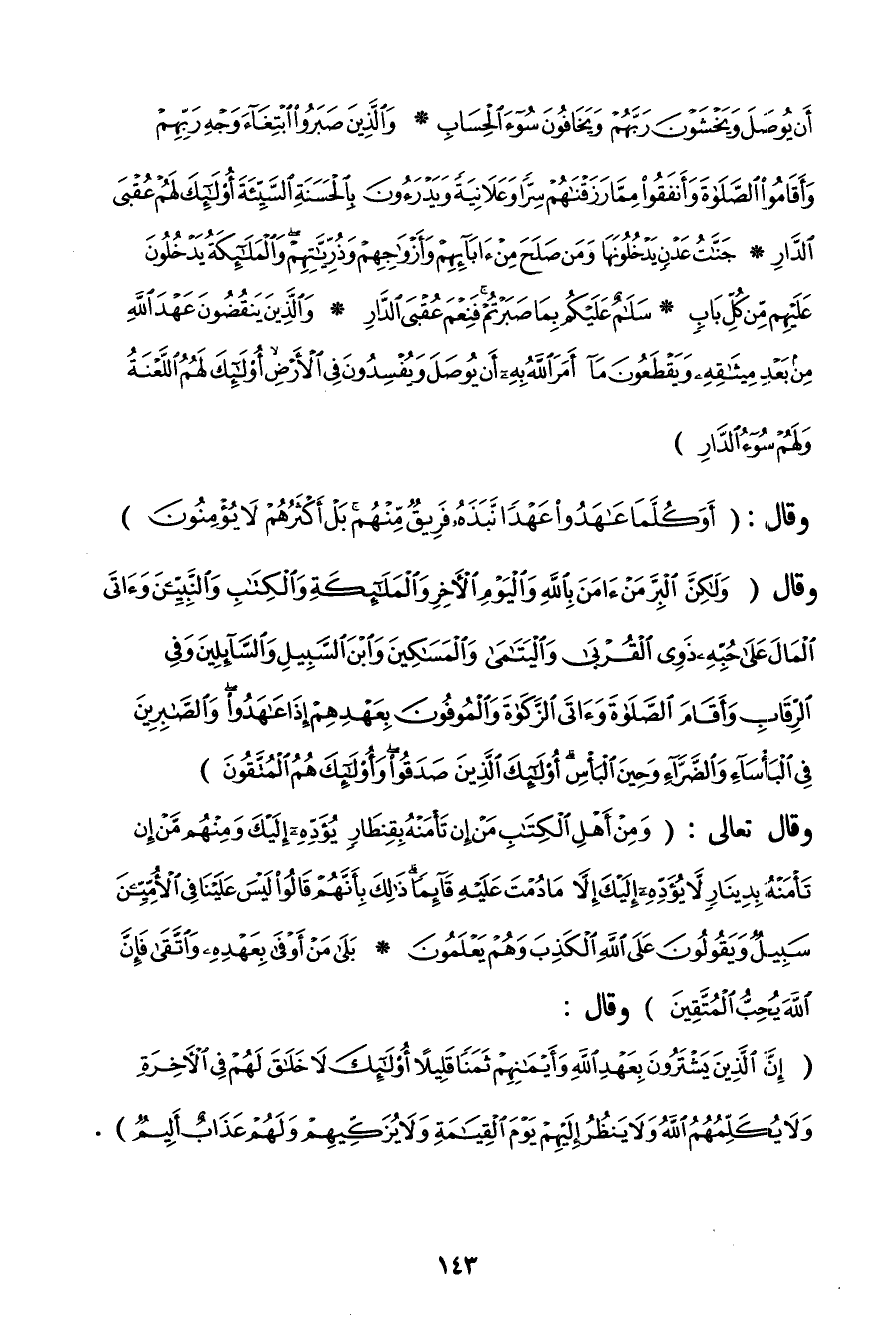 أَن يُوصَلَ وَيَخْشَوْنَ رَبَّهُمْ وَيَخَافُونَ سُوٓءَ ٱلْحِسَابِ * وَٱلَّذِينَ صَبَرُوا۟ ٱبْتِغَآءَ وَجْهِ رَبِّهِمْ
وَأَقَامُوا۟ ٱلصَّلَوٰةَ وَأَنفَقُوا۟ مِمَّا رَزَقْنَٰهُمْ سِرًّا وَعَلَانِيَةً وَيَدْرَءُونَ بِٱلْحَسَنَةِ ٱلسَّيِّئَةَ أُو۟لَٰٓئِكَ لَهُمْ عُقْبَى
ٱلدَّارِ * جَنَّٰتُ عَدْنٍ يَدْخُلُونَهَا وَمَن صَلَحَ مِنْ ءَابَآئِهِمْ وَأَزْوَٰجِهِمْ وَذُرِّيَّٰتِهِمْ ۖ وَٱلْمَلَٰٓئِكَةُ يَدْخُلُونَ
عَلَيْهِم مِّن كُلِّ بَابٍ * سَلَٰمٌ عَلَيْكُم بِمَا صَبَرْتُمْ ۚ فَنِعْمَ عُقْبَى ٱلدَّارِ * وَٱلَّذِينَ يَنقُضُونَ عَهْدَ ٱللَّهِ
مِنۢ بَعْدِ مِيثَٰقِهِۦ وَيَقْطَعُونَ مَآ أَمَرَ ٱللَّهُ بِهِۦٓ أَن يُوصَلَ وَيُفْسِدُونَ فِى ٱلْأَرْضِ ۙ أُو۟لَٰٓئِكَ لَهُمُ ٱللَّعْنَةُ
وَلَهُمْ سُوٓءُ ٱلدَّارِ )
وقال : ( أَوَكُلَّمَا عَٰهَدُوا۟ عَهْدًا نَّبَذَهُۥ فَرِيقٌ مِّنْهُم ۚ بَلْ أَكْثَرُهُمْ لَا يُؤْمِنُونَ )
وقال ( وَلَٰكِنَّ ٱلْبِرَّ مَنْ ءَامَنَ بِٱللَّهِ وَٱلْيَوْمِ ٱلْأَخِرِ وَٱلْمَلَٰٓئِكَةِ وَٱلْكِتَٰبِ وَٱلنَّبِيِّۦنَ وَءَاتَى
ٱلْمَالَ عَلَىٰ حُبِّهِۦ ذَوِى ٱلْقُرْبَىٰ وَٱلْيَتَٰمَىٰ وَٱلْمَسَٰكِينَ وَٱبْنَ ٱلسَّبِيلِ وَٱلسَّآئِلِينَ وَفِى
ٱلرِّقَابِ وَأَقَامَ ٱلصَّلَوٰةَ وَءَاتَى ٱلزَّكَوٰةَ وَٱلْمُوفُونَ بِعَهْدِهِمْ إِذَا عَٰهَدُوا۟ ۖ وَٱلصَّٰبِرِينَ
فِى ٱلْبَأْسَآءِ وَٱلضَّرَّآءِ وَحِينَ ٱلْبَأْسِ ۗ أُو۟لَٰٓئِكَ ٱلَّذِينَ صَدَقُوا۟ ۖ وَأُو۟لَٰٓئِكَ هُمُ ٱلْمُتَّقُونَ )
وقال تعالى : ( وَمِنْ أَهْلِ ٱلْكِتَٰبِ مَنْ إِن تَأْمَنْهُ بِقِنطَارٍ يُؤَدِّهِۦٓ إِلَيْكَ وَمِنْهُم مَّنْ إِن
تَأْمَنْهُ بِدِينَارٍ لَّا يُؤَدِّهِۦٓ إِلَيْكَ إِلَّا مَا دُمْتَ عَلَيْهِ قَآئِمًا ۗ ذَٰلِكَ بِأَنَّهُمْ قَالُوا۟ لَيْسَ عَلَيْنَا فِى ٱلْأُمِّيِّۦنَ
سَبِيلٌ وَيَقُولُونَ عَلَى ٱللَّهِ ٱلْكَذِبَ وَهُمْ يَعْلَمُونَ * بَلَىٰ مَنْ أَوْفَىٰ بِعَهْدِهِۦ وَٱتَّقَىٰ فَإِنَّ
ٱللَّهَ يُحِبُّ ٱلْمُتَّقِينَ ) وقال :
( إِنَّ ٱلَّذِينَ يَشْتَرُونَ بِعَهْدِ ٱللَّهِ وَأَيْمَٰنِهِمْ ثَمَنًا قَلِيلًا أُو۟لَٰٓئِكَ لَا خَلَٰقَ لَهُمْ فِى ٱلْأَخِرَةِ
وَلَا يُكَلِّمُهُمُ ٱللَّهُ وَلَا يَنظُرُ إِلَيْهِمْ يَوْمَ ٱلْقِيَٰمَةِ وَلَا يُزَكِّيهِمْ وَلَهُمْ عَذَابٌ أَلِيمٌ ) .
١٤٣